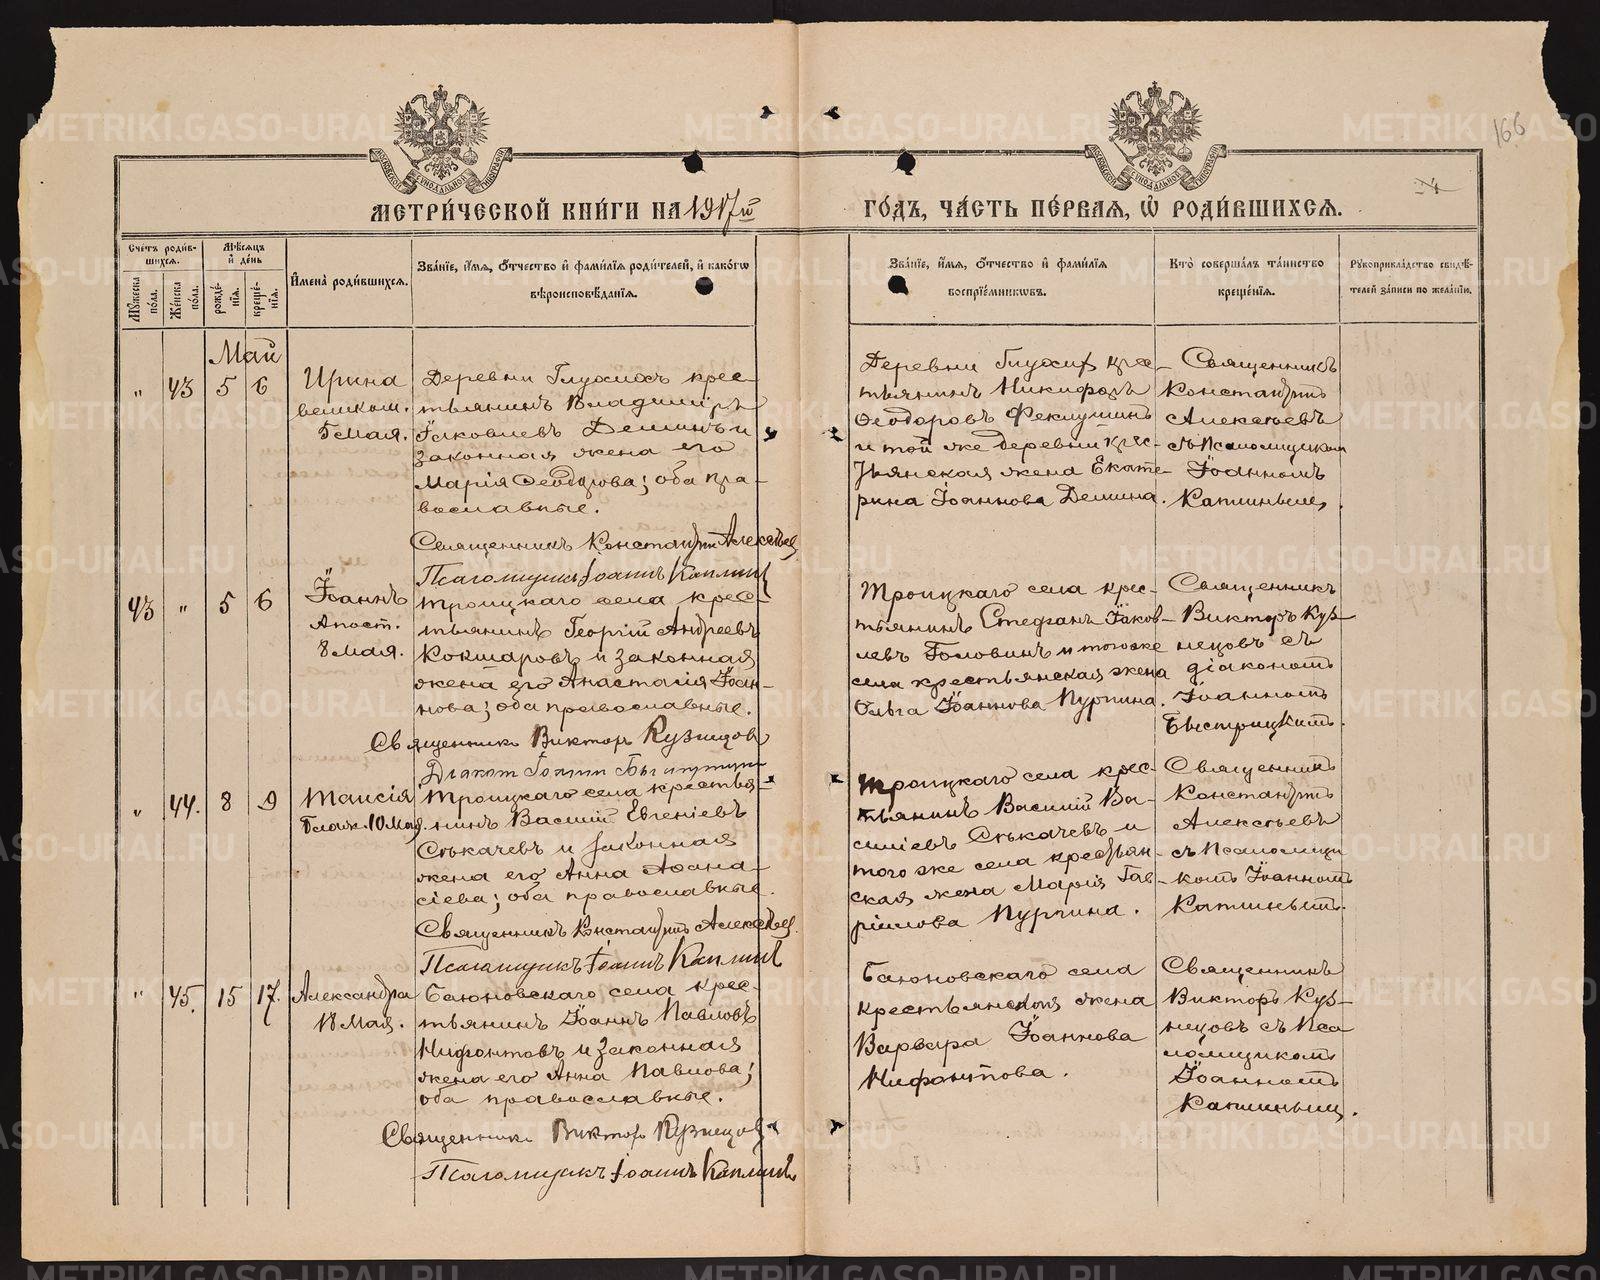 166
МЕТРИ́ЧЕСКОЙ КНИ́ГИ НА 1917й
ГО́ДЪ, ЧА́СТЬ ПЕ́РВАЯ, Ѡ РОДИ́ВШИХСЯ.
Сче́тъ роди́в-
шихся.
Му́жеска по́ла.
Же́нска по́ла.
Мѣ́сяцъ
и де́нь
рожде́нїя.
креще́нїя.
Имена̀ роди́вшихся.
Зва́нїе, и́мя, о́тчество и фами́лїя роди́телей, и како́гѡ
вѣроисповѣ́данїя.
Зва́нїе, и́мя, о́тчество и фами́лїя
воспрїе́мникѡвъ.
Кто̀ соверша́лъ та́инство
креще́нїя.
Рукоприкла́дство свидѣ́-
телей за́писи по жела́нїю.
Май
" 43 5 6
Ирина
великом.
5 мая.
Деревни Глухихъ крес-
тьянинъ Владиміръ
Іаковлевъ Деминъ и
законная жена его
Марія Ѳеодорова; оба пра-
вославные.
Священникъ Константинъ Алексѣев
Псаломщикъ Іоаннъ Каплин
Деревни Глухихъ крес-
тьянинъ Никифоръ
Ѳеодоровъ Феклушинъ
и той же деревни крес-
тьянская жена Екате-
рина Іоаннова Демина.
Священникъ
Константинъ
Алексѣевъ
съ Псаломщикомъ
Іоанномъ
Каплинымъ.
43 " 5 6
Іоаннъ
Апост.
8 мая.
Троицкаго села крес-
тьянинъ Георгій Андреевъ
Кокшаровъ и законная
жена его Анастасія Іоан-
нова; оба православные.
Священникъ Викторъ Кузнецовъ
Діаконъ Іоаннъ Быстрицкій
Троицкаго села крес-
тьянинъ Стефанъ Іаков-
левъ Головинъ и того же
села крестьянская жена
Ольга Іоаннова Пургина.
Священникъ
Викторъ Куз-
нецовъ съ
діакономъ
Іоанномъ
Быстрицкимъ.
" 44. 8 9
Таисія
блаж. 10 мая.
Троицкаго села крестья-
нинъ Василій Евгеніевъ
Стькачевъ и законная
жена его Анна Аѳана-
сіева; оба православные.
Священникъ Константинъ Алексѣев
Псаломщикъ Іоаннъ Каплин
Троицкаго села крес-
тьянинъ Василій Ва-
силіевъ Стькачевъ и
того же села крестьян-
ская жена Марія Гав-
ріилова Пургина.
Священникъ
Константинъ
Алексѣевъ
съ Псаломщи
комъ Іоанномъ
Каплинымъ.
" 45. 15 17.
Александра
18 мая.
Баюновскаго села крес-
тьянинъ Іоаннъ Павловъ
Нифонтовъ и законная
жена его Анна Павлова;
оба православные.
Священникъ Викторъ Кузнецовъ
Псаломщикъ Іоаннъ Каплинъ
Баюновскаго села
крестьянская жена
Варвара Іоаннова
Нифонтова.
Священникъ
Викторъ Куз-
нецовъ съ Пса
ломщикомъ
Іоанномъ
Каплинымъ.
METRIKI.GASO-URAL.RU